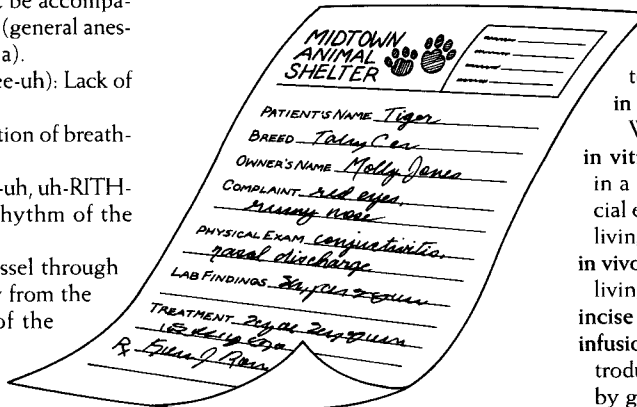 t be accompa-
(general anes-
a).
ee-uh): Lack of
tion of breath-
-uh, uh-RITH-
hythm of the
ssel through
y from the
of the
MIDTOWN
ANIMAL
SHELTER
PATIENT'S NAME Tiger
BREED
OWNER'S NAME Molly Jones
COMPLAINT red eyes,
runny nose
PHYSICAL EXAM conjuctivitis,
nasal discharge
LAB FINDINGS
TREATMENT
Rx
t
in
W
in vitr
in a
cial e
living
in vivo
living
incise
infusio
trodu
by g